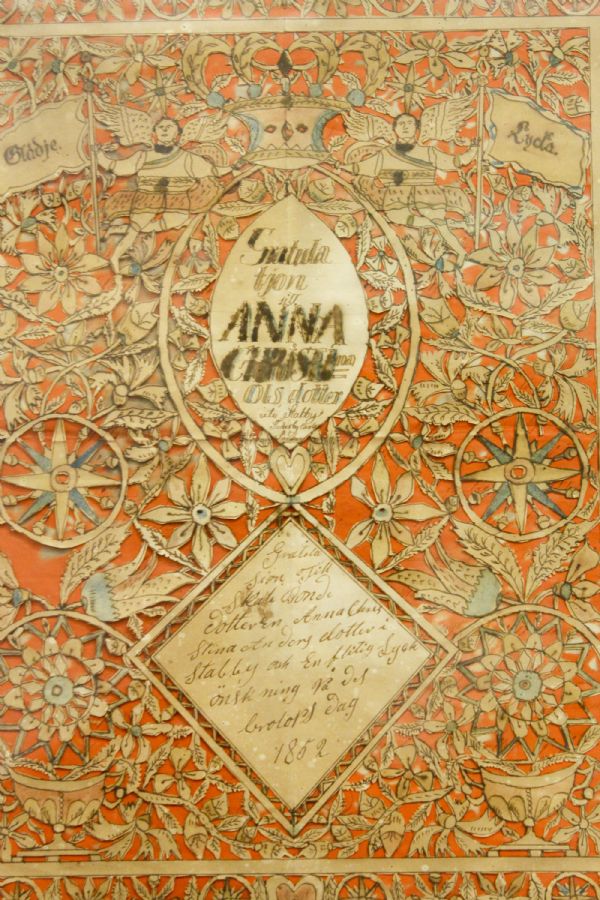 Glädje.
Lycka.
Gratula
tjon
till
ANNA
CHRISTina
Ols dotter
Gratula
sion Till
dotteren Anna Chris
stina Anders dotter i
Stabby och En flitig Lyck
önsk ning på des
brolops Dag
1852